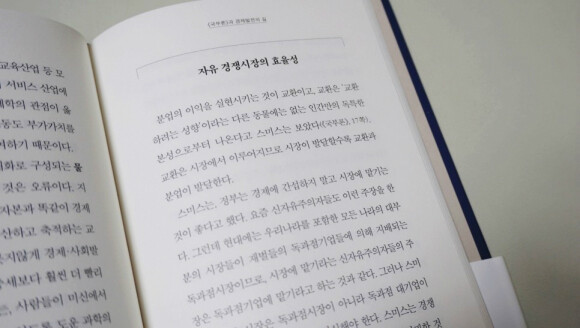 교육산업 등 모
서비스 산업에
제학의 관점이 옳
동도 부가가치를
하기 때문이다.
화로 구성되는 봀
것은 오류이다. 지
자본과 똑같이 경제
산하고 축적하는 교
지않게 경제·사회발
세보다 훨씬 더 빨리
, 사람들이 미신에서
도 도운 과학의
《국부론》과
자유 경쟁시장의 효율성
분업의 이익을 실현시키는 것이 교환이고, 교환은 ‘교환
하려는 성향’이라는 다른 동물에는 없는 인간만의 독특한
본성으로부터 나온다고 스미스는 보았다(《국부론》, 17쪽).
교환은 시장에서 이루어지므로 시장이 발달할수록 교환과
분업이 발달한다.
스미스는, 정부는 경제에 간섭하지 말고 시장에 맡기는
것이 좋다고 했다. 요즘 신자유주의자들도 이런 주장을 한
다. 그런데 현대에는 우리나라를 포함한 모든 나라의 대부
분의 시장들이 재벌들의 독과점기업들에 의해 지배되는
독과점시장이므로, 시장에 맡기라는 신자유주의자들의 주
장은 독과점기업에 맡기라고 하는 것과 같다. 그러나 스미
독과점시장이 아니라 독과점 대기업이
해야 한다. 스미스는 경쟁
유로